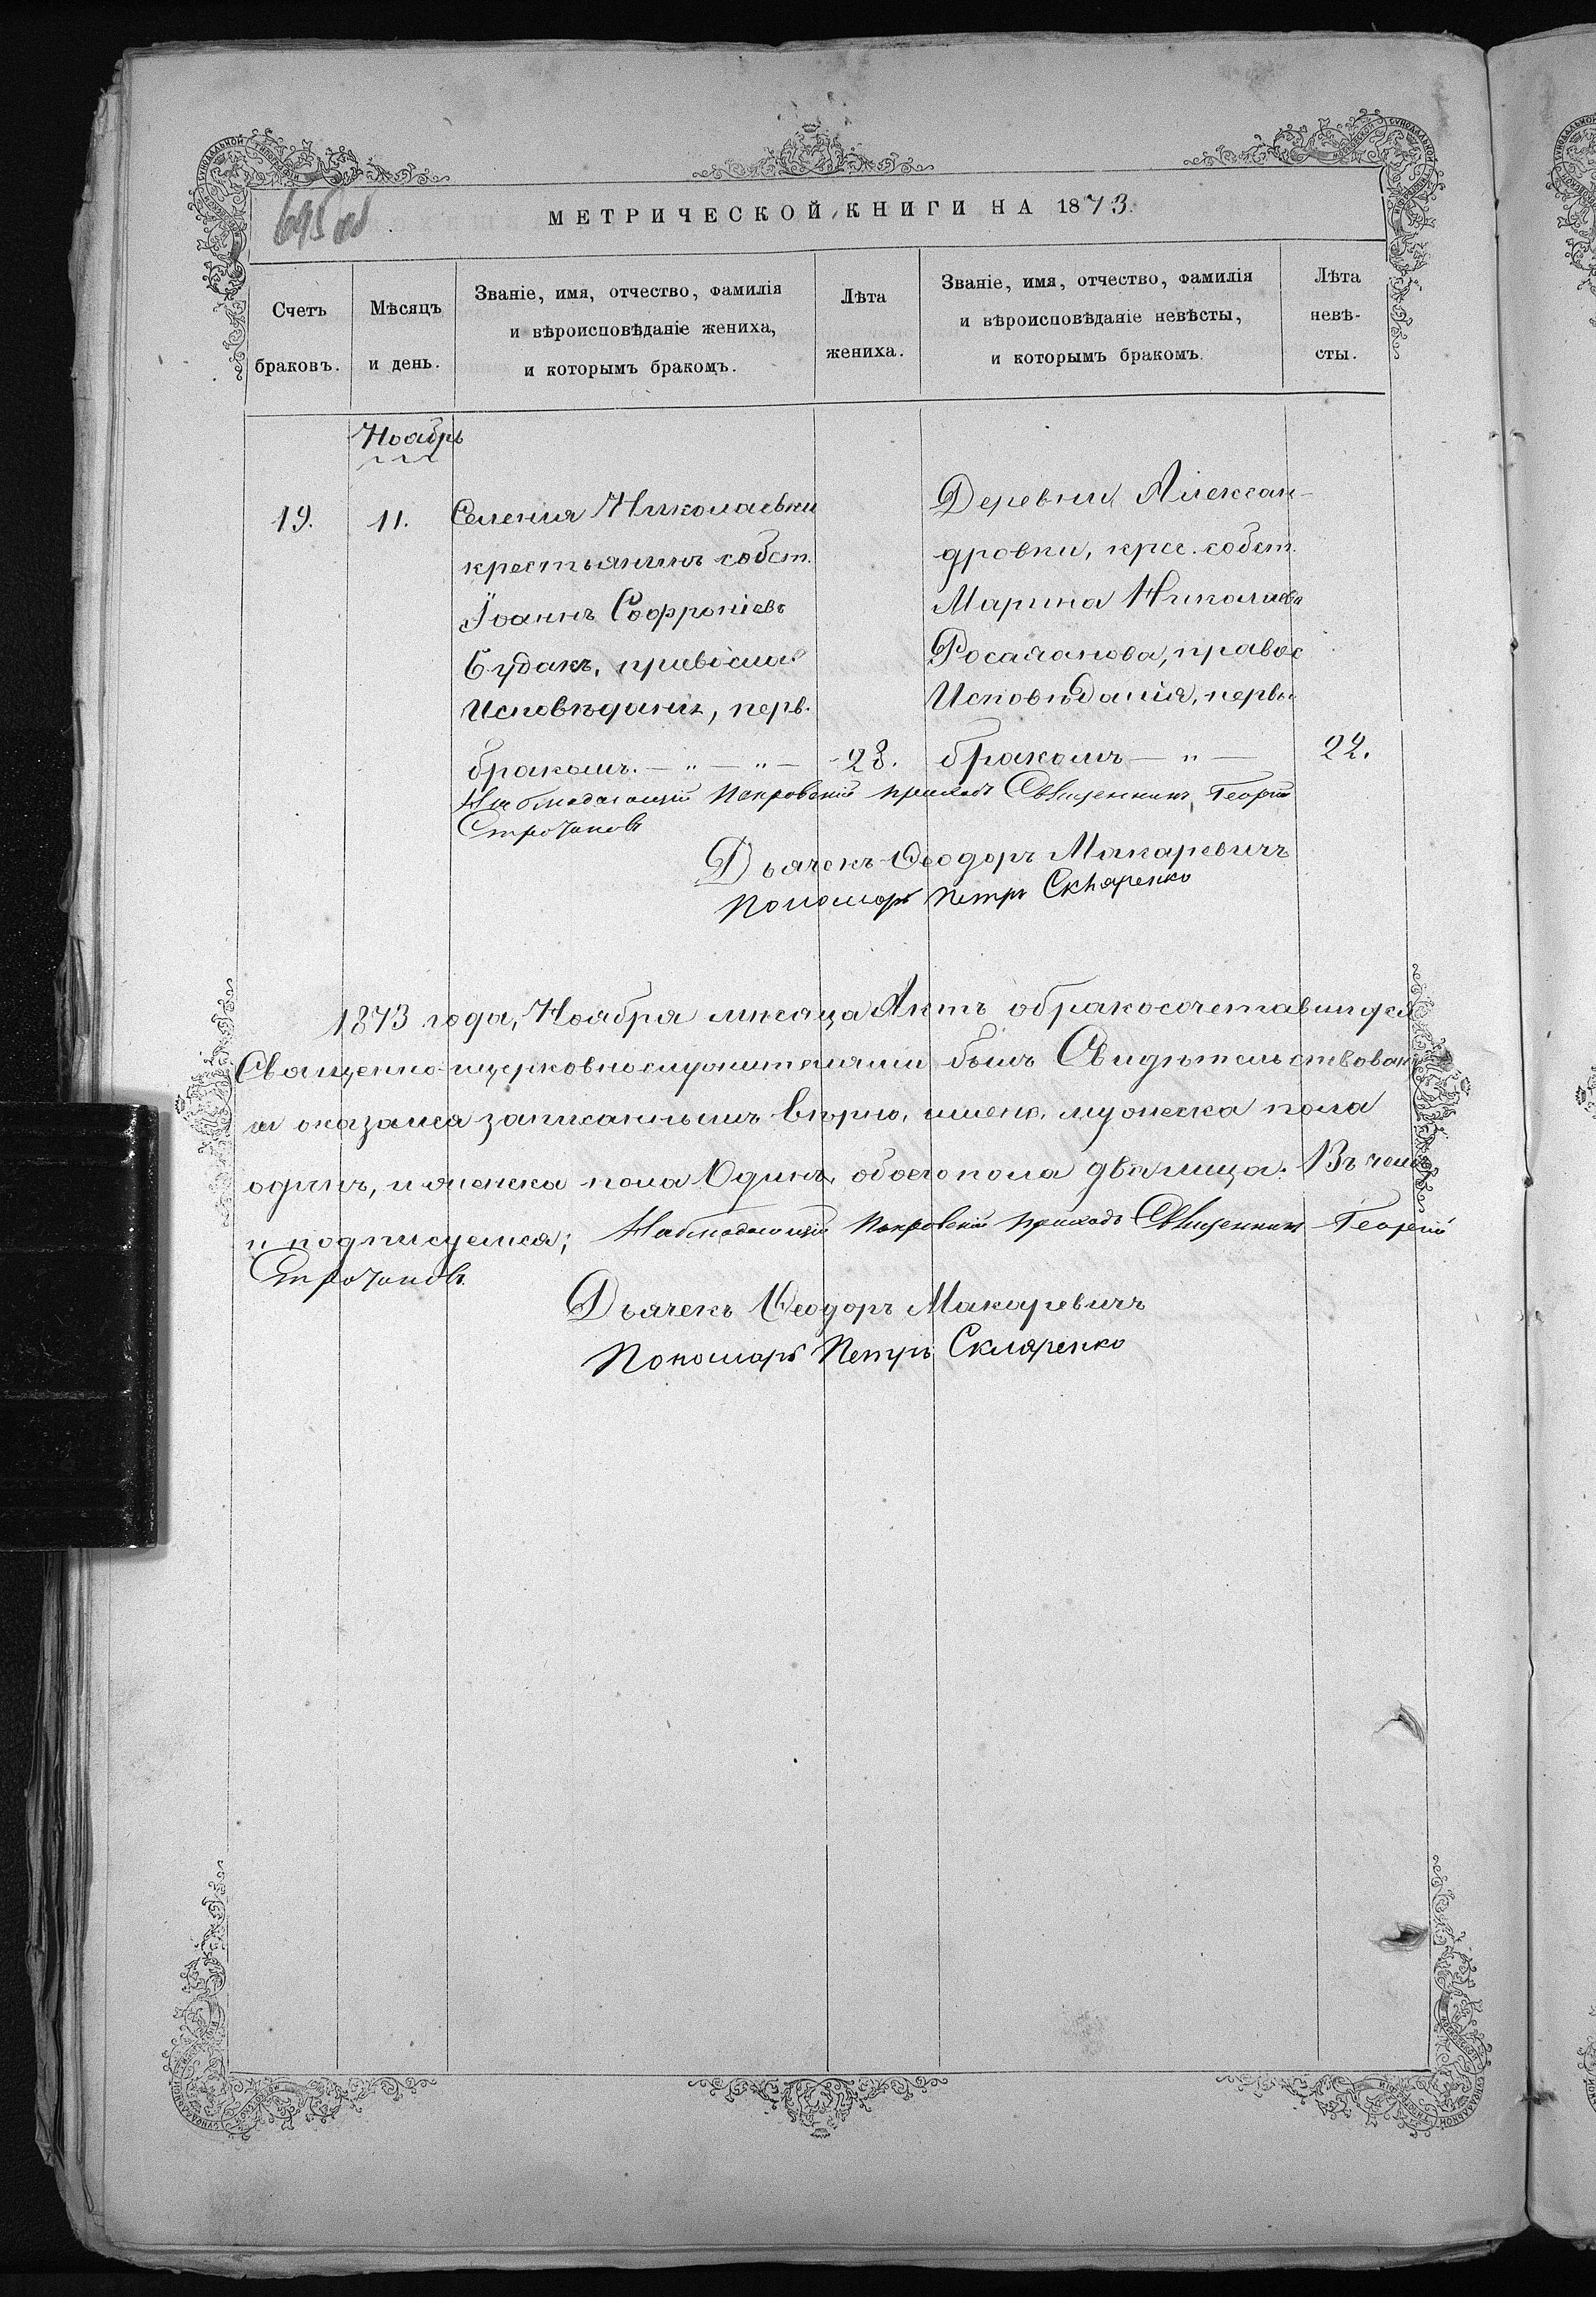 695 об
МЕТРИЧЕСКОЙ КНИГИ НА 1873.
Счетъ браковъ.
Мѣсяцъ и день.
Званіе, имя, отчество, фамилія
и вѣроисповѣданіе жениха,
и которымъ бракомъ.
Лѣта жениха.
Званіе, имя, отчество, фамилія
и вѣроисповѣданіе невѣсты,
и которымъ бракомъ.
Лѣта невѣ-
сты.
Ноябрь
19.
11.
Селенія Николаевки
крестьянинъ собст.
Іоаннъ Софроніевъ
Будакъ,
Исповѣданія, перв.
бракомъ. — „ — „ —
23.
Деревни Алексан-
дровки, крес. собст.
Марина Николаева
правос
Исповѣданія, первы
бракомъ — „ —
22.
Наблюдающій Покровскій приходъ Священникъ Георгій
Дьячекъ Ѳеодоръ Макаревичъ
Пономарь Петръ Скляренко
1873 года, Ноября мѣсяца Актъ о бракосочетавшихся
Священно-церковнослужителями былъ Свидѣтельствован
и оказался записаннымъ вѣрно, имено, мужеска пола
одинъ, и женска пола Одинъ, обоего пола два лица. Въ чемъ
и подписуемся; Наблюдающій Покровскій приходъ Священникъ Георгій
Дьячекъ Ѳеодоръ Макаревичъ
Пономарь Петръ Скляренко